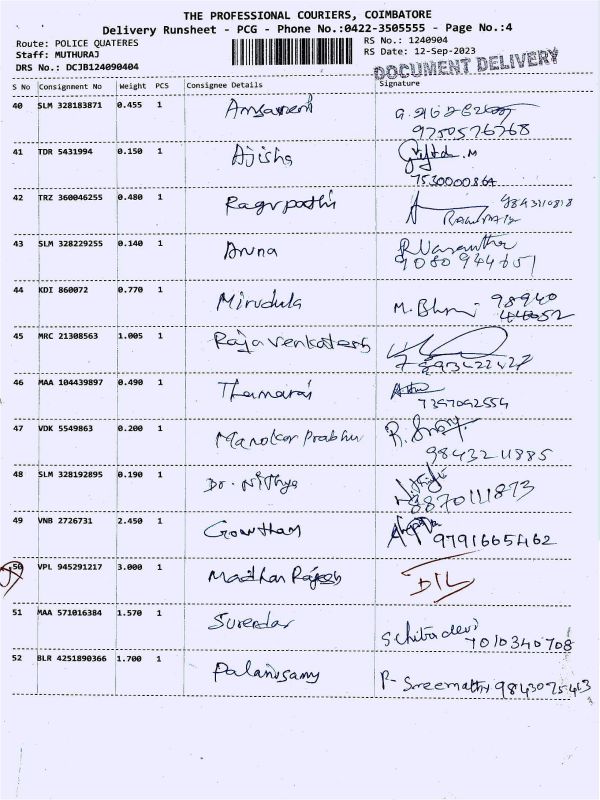 THE PROFESSIONAL COURIERS, COIMBATORE
Delivery Runsheet - PCG - Phone No.:0422-3505555 - Page No.:4
Route: POLICE QUATERES RS No.: 1240904
Staff: MUTHURAJ RS Date: 12-Sep-2023
DRS No.: DCJB124090404 DOCUMENT DELIVERY
S No Consignment No Weight PCS Consignee Details Signature
40 SLM 328183871 0.455 1
9750576768
41 TDR 5431994 0.150 1 Ajisha
7530000864
42 TRZ 360046255 0.480 1 Ragupathi 9843110818
43 SLM 328229255 0.140 1 Aruna R Vasantha
9080944651
44 KDI 860072 0.770 1 Mirudula M. 98940
45 MRC 21308563 1.005 1 Raja Venkatesh
46 MAA 104439897 0.490 1 Thamarai
7397092554
47 VDK 5549863 0.200 1 Manoker Prabhu R.
9843211885
48 SLM 328192895 0.190 1 Dr. Nithya
8870111873
49 VNB 2726731 2.450 1 Gowtham 9791665462
50 VPL 945291217 3.000 1 Madhan Rajesh D/L
51 MAA 571016384 1.570 1 Surendar
Schitradevi
7010340708
52 BLR 4251890366 1.700 1 Palanisamy
P- Sreemathi 9843075463